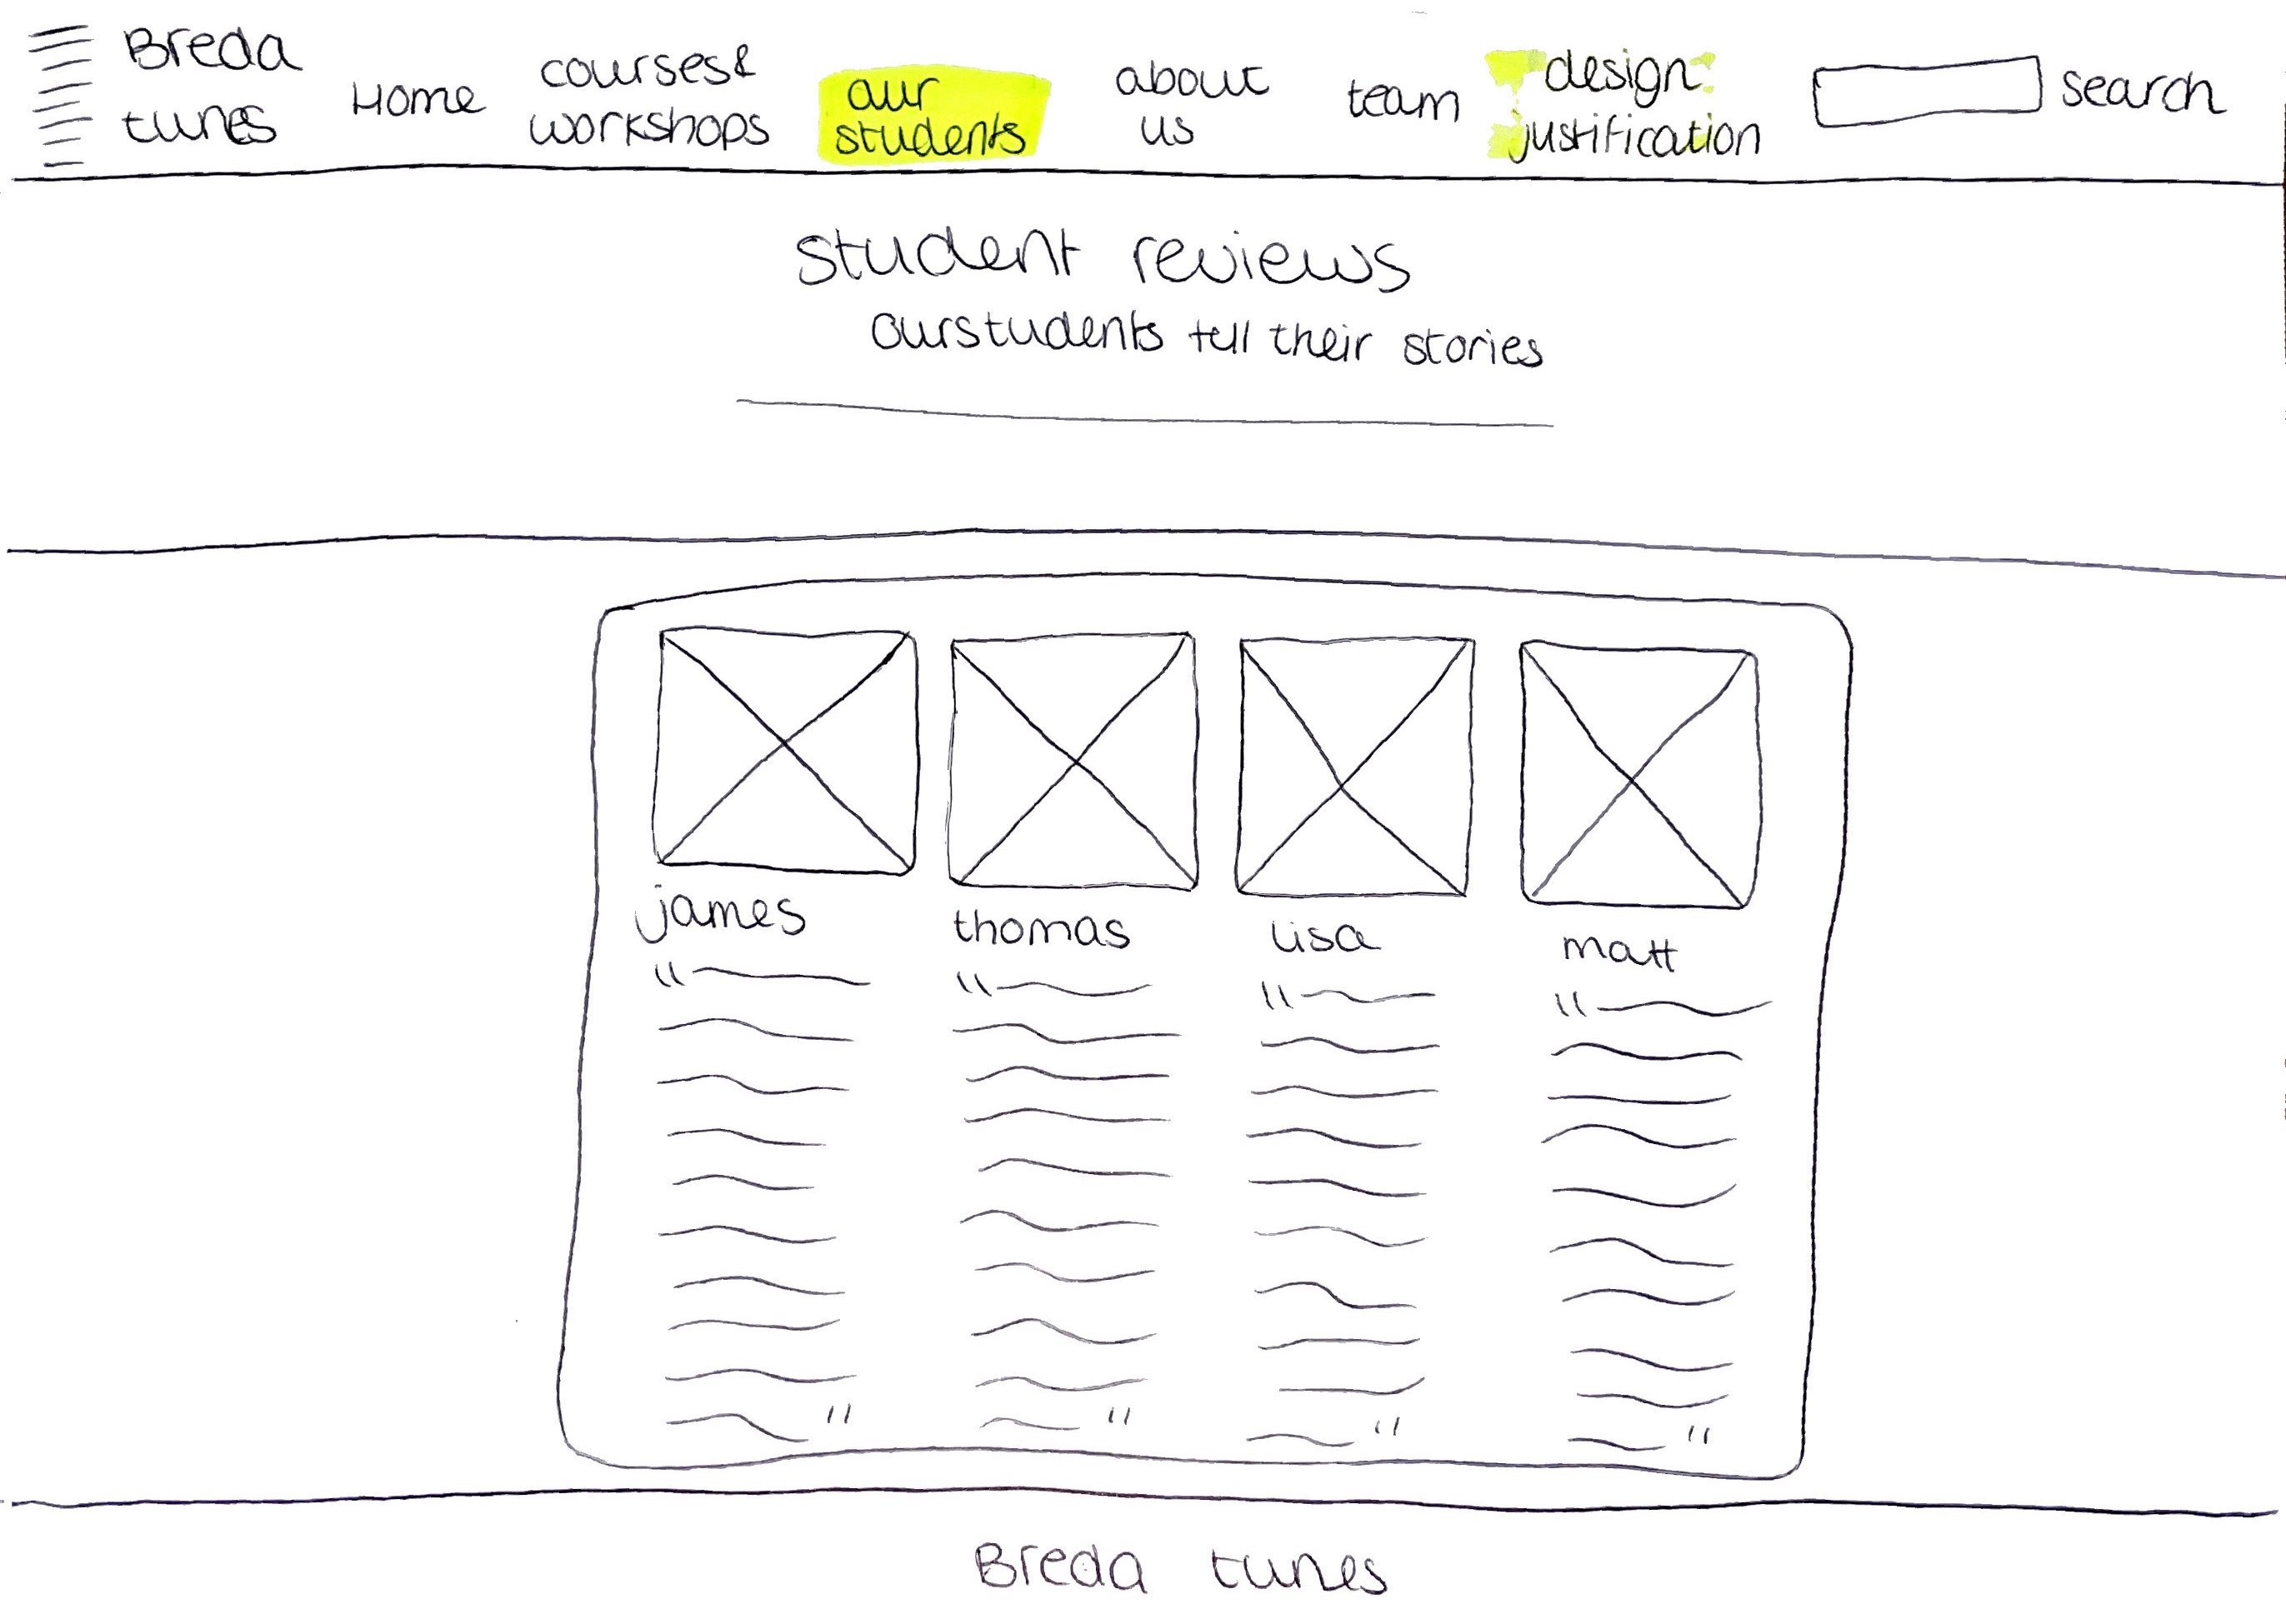 Breda
tunes
Home
courses&
workshops
our
students
about
us
team
design
justification
search
student reviews
our students tell their stories
james
thomas
lisa
matt
Breda tunes